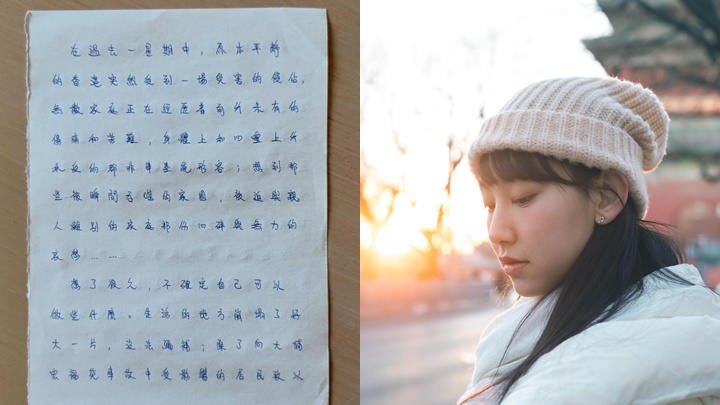 在過去一星期中，原本平靜
的香港突然受到一場災害的侵佔，
無數家庭正在經歷着前所未有的
傷痛和苦難，身體上和心靈上所
承受的都非筆墨能形容；想到那
些被瞬間吞噬的家園，被迫與親
人離別的家庭都 心碎與無力的
哀 ……
想了很久，不確定自己可以
做些什麼。生活的地方崩塌了好
大一片， 法 ；除了向大埔
宏福苑事故中受影響的居民致以